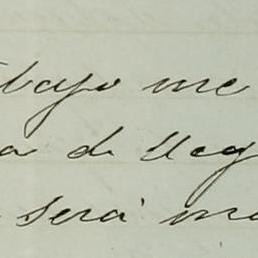 bajo me
a de lleg
será ma